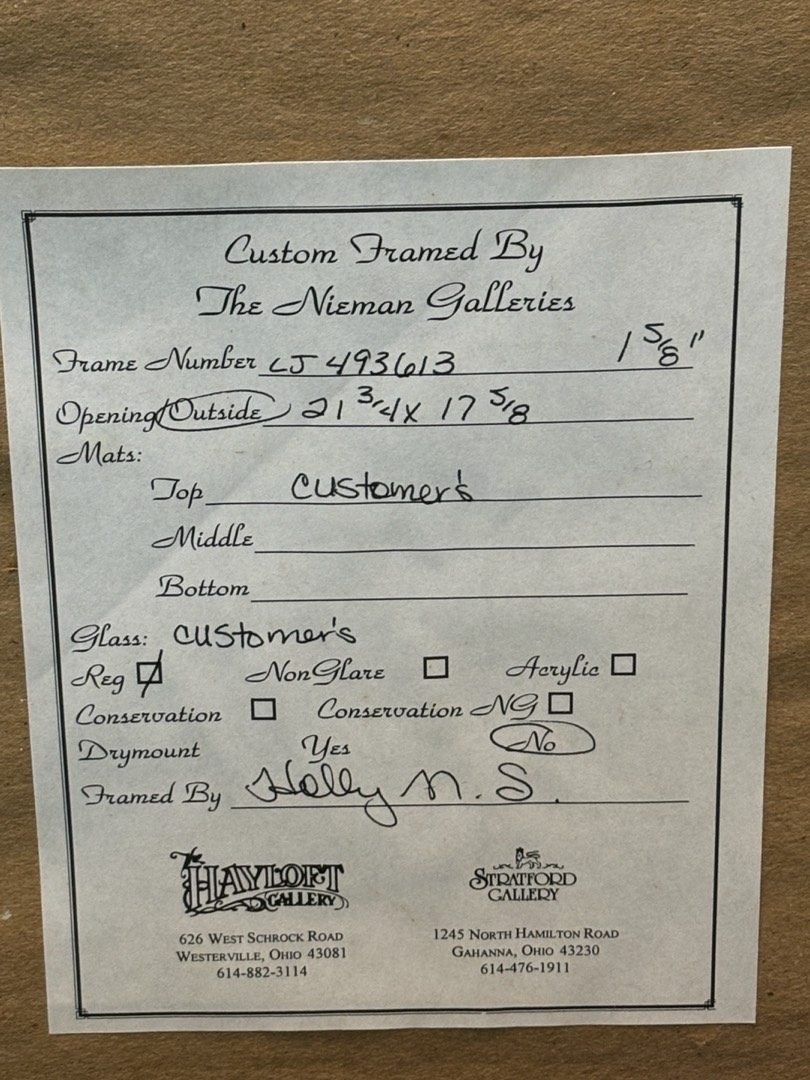 Custom Framed By
The Nieman Galleries
Frame Number LJ 493613 1 5/8"
Opening/Outside 21 3/4 x 17 5/8
Mats:
Top customer's
Middle
Bottom
Glass: customer's
Reg NonGlare Acrylic
Conservation Conservation NG
Drymount Yes No
Framed By Holly N. S.
The HAYLOFT GALLERY
626 WEST SCHROCK ROAD
WESTERVILLE, OHIO 43081
614-882-3114
STRATFORD GALLERY
1245 NORTH HAMILTON ROAD
GAHANNA, OHIO 43230
614-476-1911